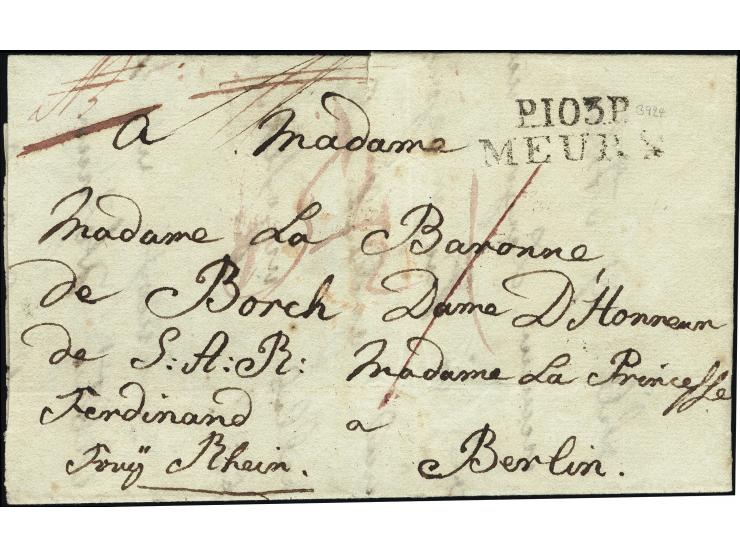 P.103.P.
MEURS
3924
a Madame
Madame La Baronne
de Borch Dame D'Honneur
de S: A: R: Madame La Princesse
Ferdinand a
Berlin.
Rhein.